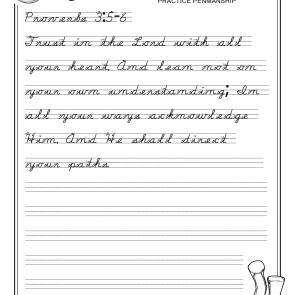 PRACTICE PENMANSHIP
Proverbs 3:5-6
Trust in the Lord with all
your heart. And lean not on
your own understanding; In
all your ways acknowledge
Him, And He shall direct
your paths.